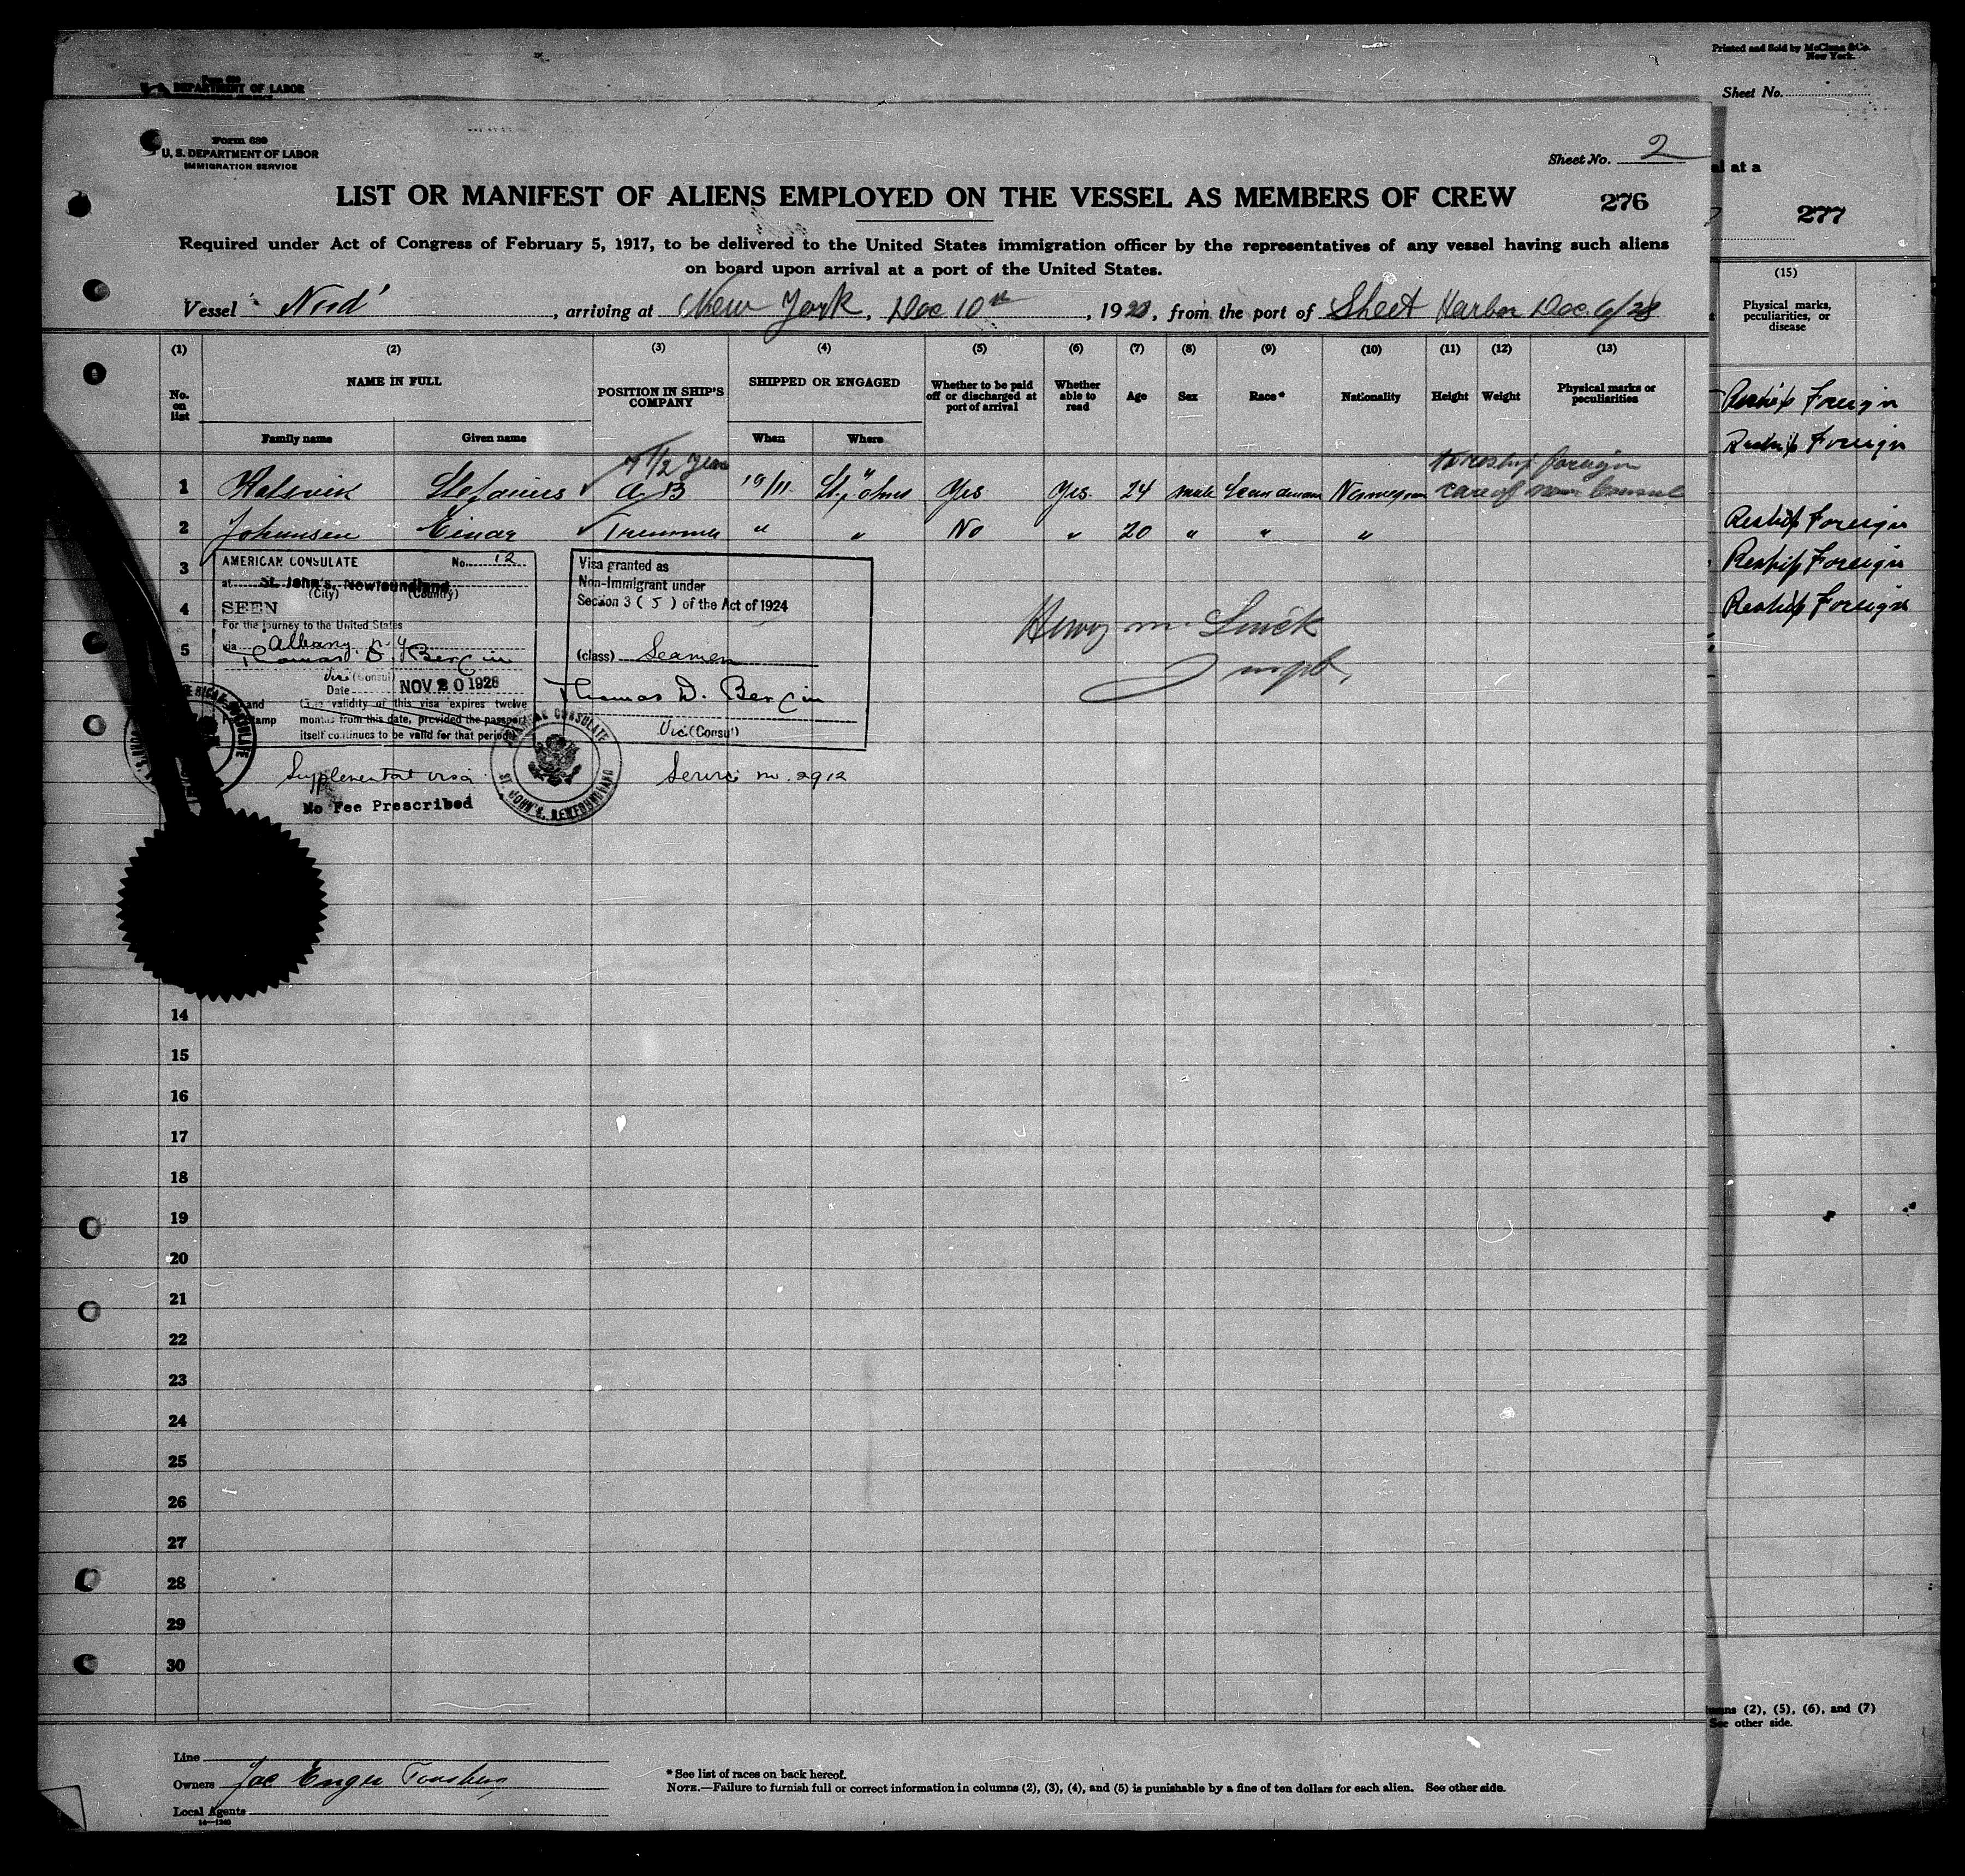 Printed and Sold by McClunn & Co.
New York.
Form 680
DEPARTMENT OF LABOR
Sheet No.
Form 680
U. S. DEPARTMENT OF LABOR
IMMIGRATION SERVICE
Sheet No. 2
al at a
LIST OR MANIFEST OF ALIENS EMPLOYED ON THE VESSEL AS MEMBERS OF CREW
276
277
Required under Act of Congress of February 5, 1917, to be delivered to the United States immigration officer by the representatives of any vessel having such aliens
on board upon arrival at a port of the United States.
Vessel , arriving at New York, Dec 10th, 1928, from the port of Sheet Harbor Dec. 6/28
(1) (2) (3) (4) (5) (6) (7) (8) (9) (10) (11) (12) (13)
(15)
Physical marks, peculiarities, or disease
No. on list
NAME IN FULL
POSITION IN SHIP'S COMPANY
SHIPPED OR ENGAGED
Whether to be paid off or discharged at port of arrival
Whether able to read
Age
Sex
Race*
Nationality
Height
Weight
Physical marks or peculiarities
Family name
Given name
When
Where
Reship Foreign
Reship Foreign
7 1/2 Year
to reship foreign
1 Stefanus AB 19/11 St. Johns Yes Yes. 24 male Norwegian care of Consul
2 Johansen Einar " " No " 20 " " "
Reship Foreign
Reship Foreign
Reship Foreign
3
4
5
AMERICAN CONSULATE No. 12
at St. John's, Newfoundland
(City) (Country)
SEEN
For the journey to the United States
via Albany. N.Y
Thomas D. Bergin
Vice (Consul)
Date NOV 20 1928
Seal and
Fee Stamp
(The validity of this visa expires twelve
months from this date, provided the passport
itself continues to be valid for that period)
Visa granted as
Non-Immigrant under
Section 3 (5) of the Act of 1924
(class) Seamen
Thomas D. Bergin
Vice (Consul)
Henry M.
AMERICAN CONSULATE
ST. JOHN'S, NEWFOUNDLAND
Supplemental visa
Service no. 2912
No Fee Prescribed
14
15
16
17
18
19
20
21
22
23
24
25
26
27
28
29
30
columns (2), (5), (6), and (7)
See other side.
Line
Owners
Local Agents
14—1240
* See list of races on back hereof.
NOTE.—Failure to furnish full or correct information in columns (2), (3), (4), and (5) is punishable by a fine of ten dollars for each alien. See other side.